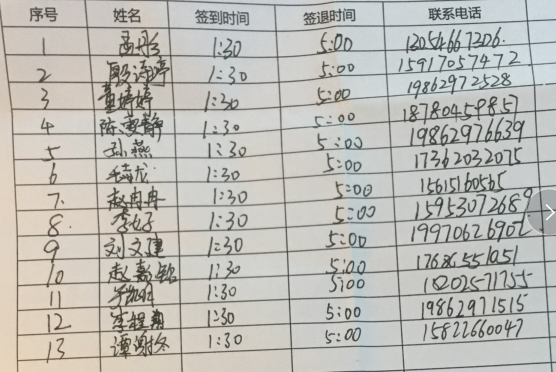 序号 姓名 签到时间 签退时间 联系电话
1 1:30 5:00 13054667306
2 1:30 5:00 15917057472
3 董婷婷 1:30 5:00 19862972528
4 陈雯静 1:30 5:00 18780459857
5 孙燕 1:30 5:00 19862976639
6 1:30 5:00 17362032075
7 赵冉冉 1:30 5:00 15615160565
8 1:30 5:00
9 刘文建 1:30 5:00
10 赵嘉铭 1:30 5:00
11 1:30 5:00 15202571755
12 1:30 5:00 19862971515
13 1:30 5:00 15822660047